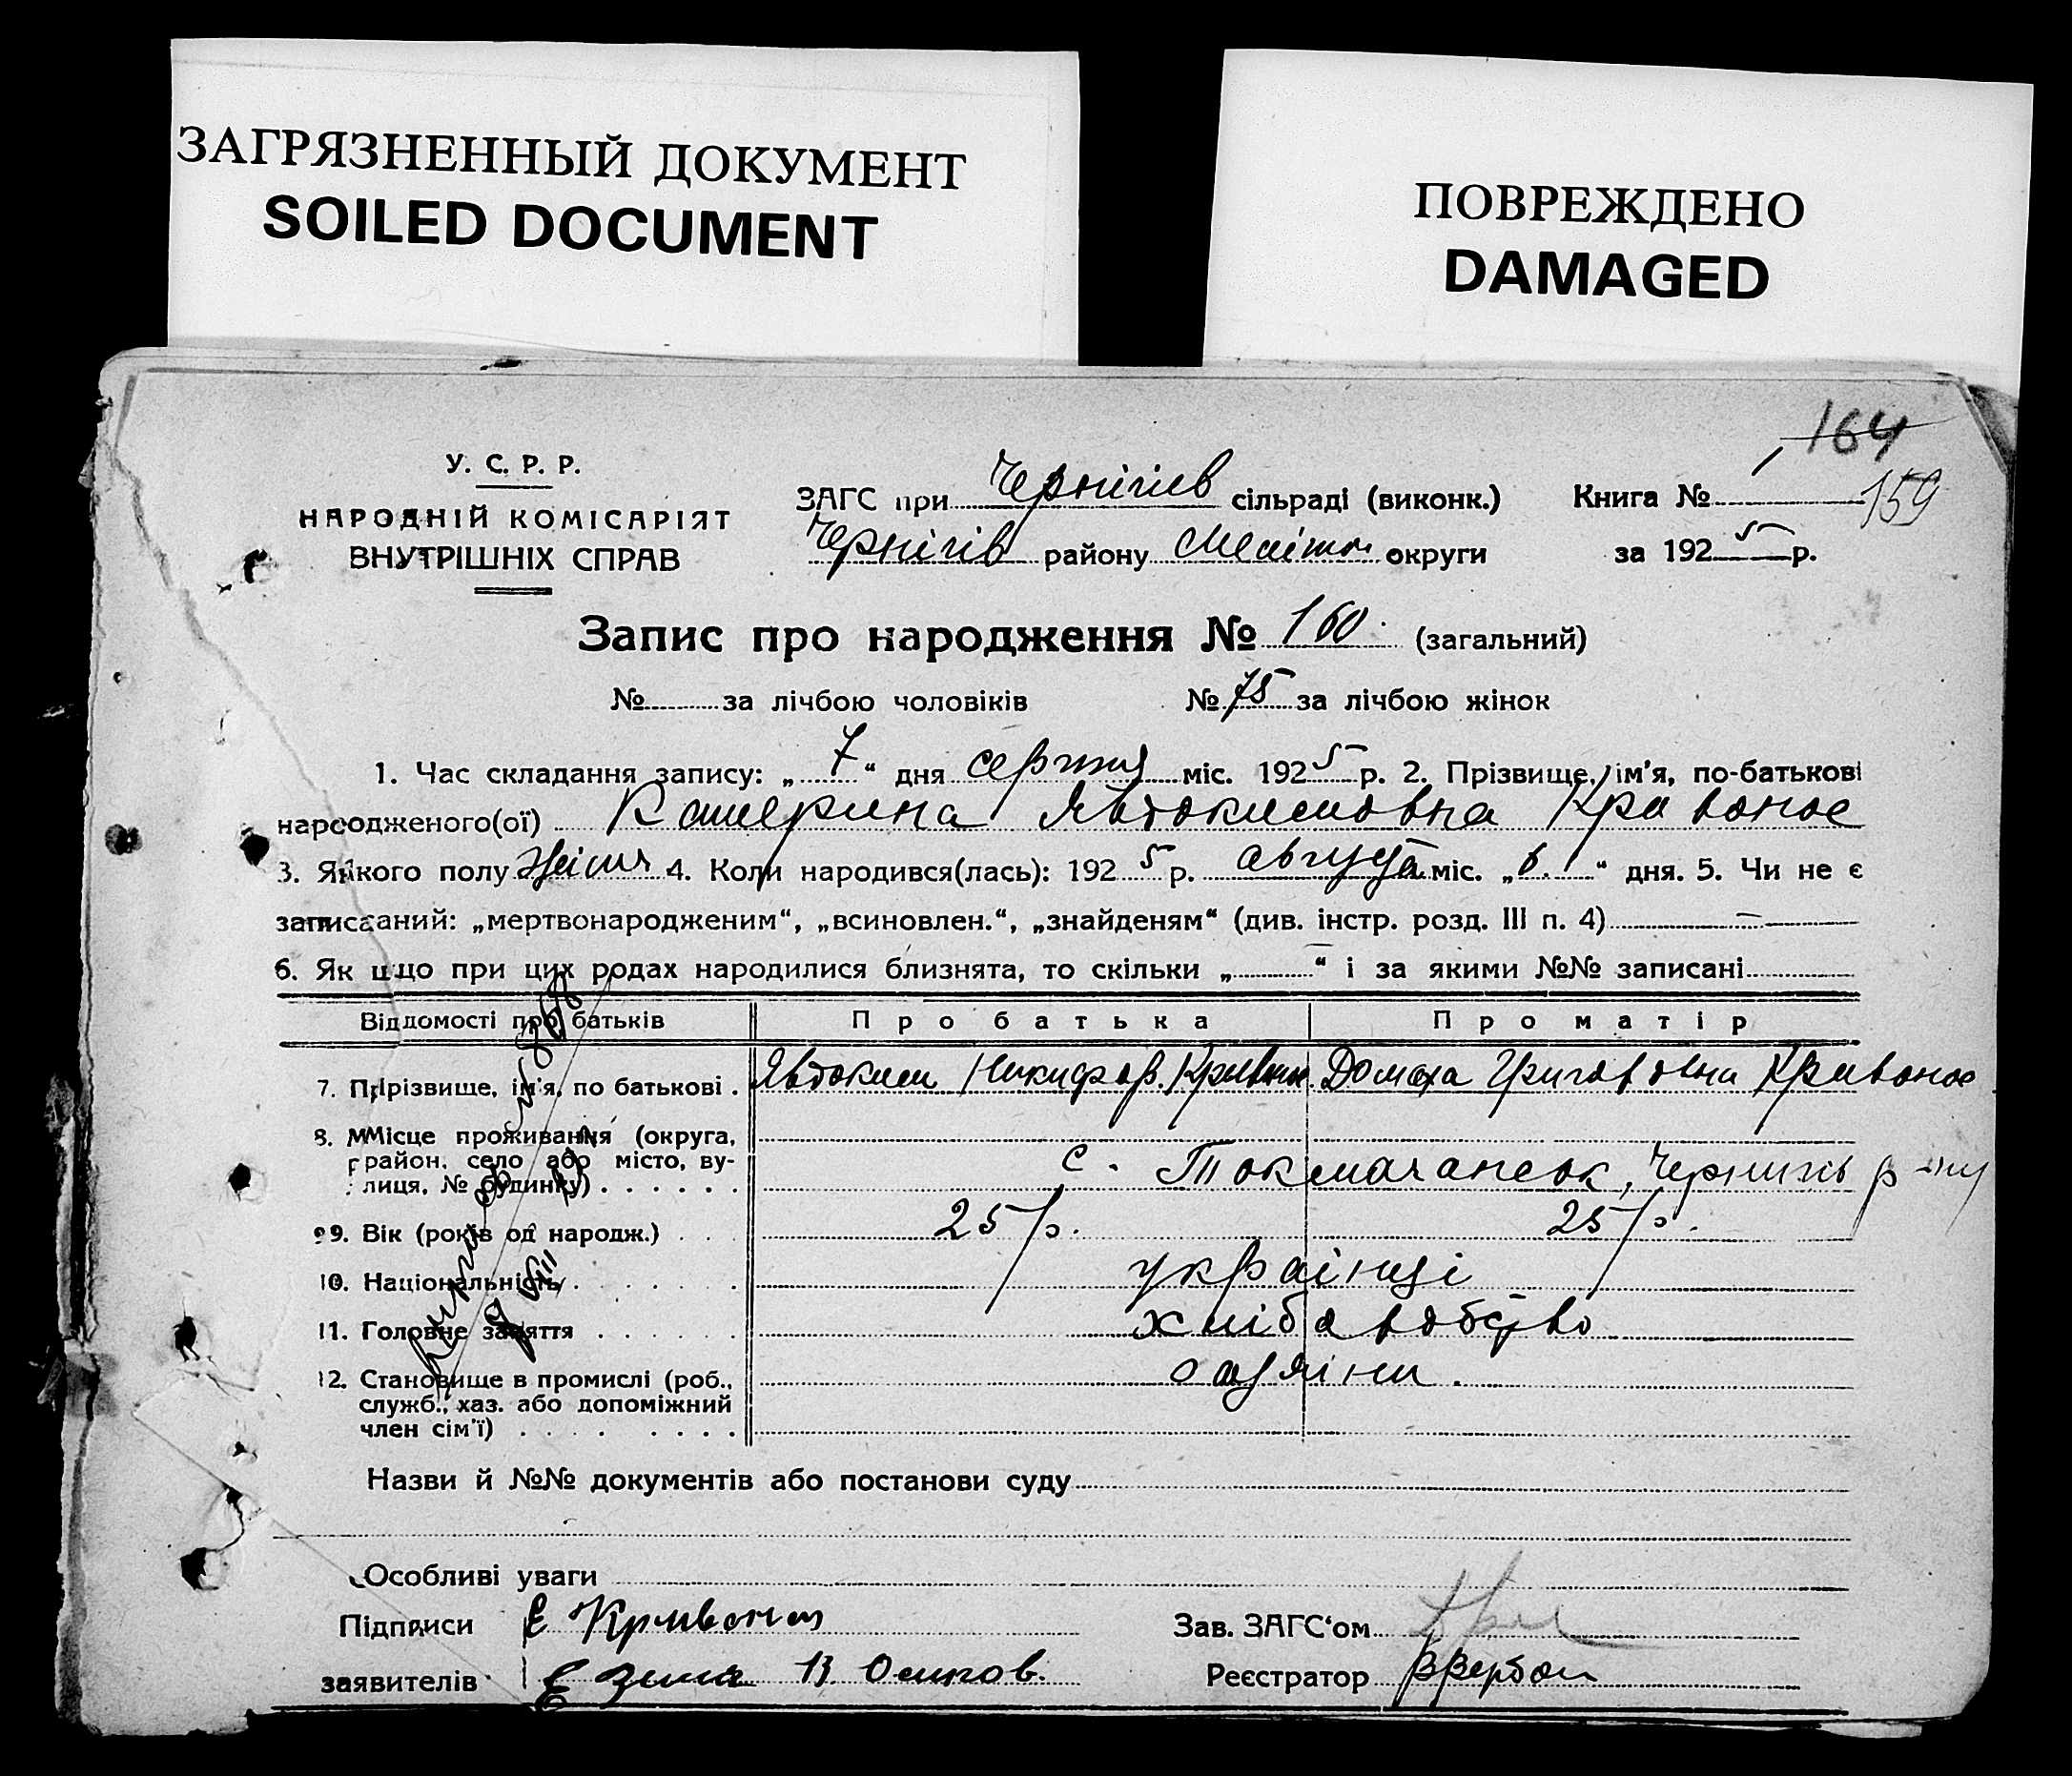 ЗАГРЯЗНЕННЫЙ ДОКУМЕНТ
SOILED DOCUMENT
ПОВРЕЖДЕНО
DAMAGED
164
159
У. С. Р. Р.
НАРОДНІЙ КОМІСАРІЯТ
ВНУТРІШНІХ СПРАВ
ЗАГС при Чернігів сільраді (виконк.) Книга № 1
Чернігів району Меліт округи за 1925 р.
Запис про народження № 160. (загальний)
№ за лічбою чоловіків № 75 за лічбою жінок
1. Час складання запису: „7“ дня серпня міс. 1925 р. 2. Прізвище, ім'я, по-батькові
народженого(ої) Катерина Явтокимовна Кривонос
3. Якого полу жіноч 4. Коли народився(лась): 1925 р. августа міс. „6.“ дня. 5. Чи не є
записаний: „мертвонародженим“, „всиновлен.“, „знайденям“ (див. інстр. розд. III п. 4) —
6. Як що при цих родах народилися близнята, то скільки „ “ і за якими №№ записані
Відомості про батьків Про батька Про матір
7. Прізвище, ім'я, по батькові . Явтоким Никифор. Кривон. Домаха Григоровна Кривонос
8. Місце проживання (округа,
район, село або місто, ву-
лиця, № будинку) . . . . . . с. Токмачанськ, Черниги р-ну
9. Вік (років од народж.) . . . 25 р. 25 р.
10. Національність . . . . . . українці
11. Головне заняття . . . . . . хліборобство
12. Становище в промислі (роб.,
служб., хаз. або допоміжний
член сім'ї) . . . . . . .
Назви й №№ документів або постанови суду
Особливі уваги
Підписи Е Кривонос Зав. ЗАГС'ом
заявителів В. Осипов. Реєстратор